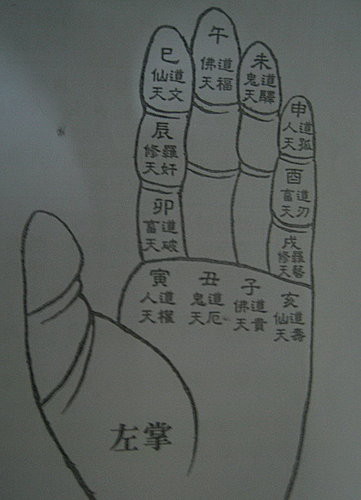 巳
仙道
天文
午
佛道
天福
未
鬼道
天驛
申
人道
天孤
辰
修羅
天奸
酉
畜道
天刃
卯
畜道
天破
戌
修羅
天藝
寅
人道
天權
丑
鬼道
天厄
子
佛道
天貴
亥
仙道
天壽
左掌